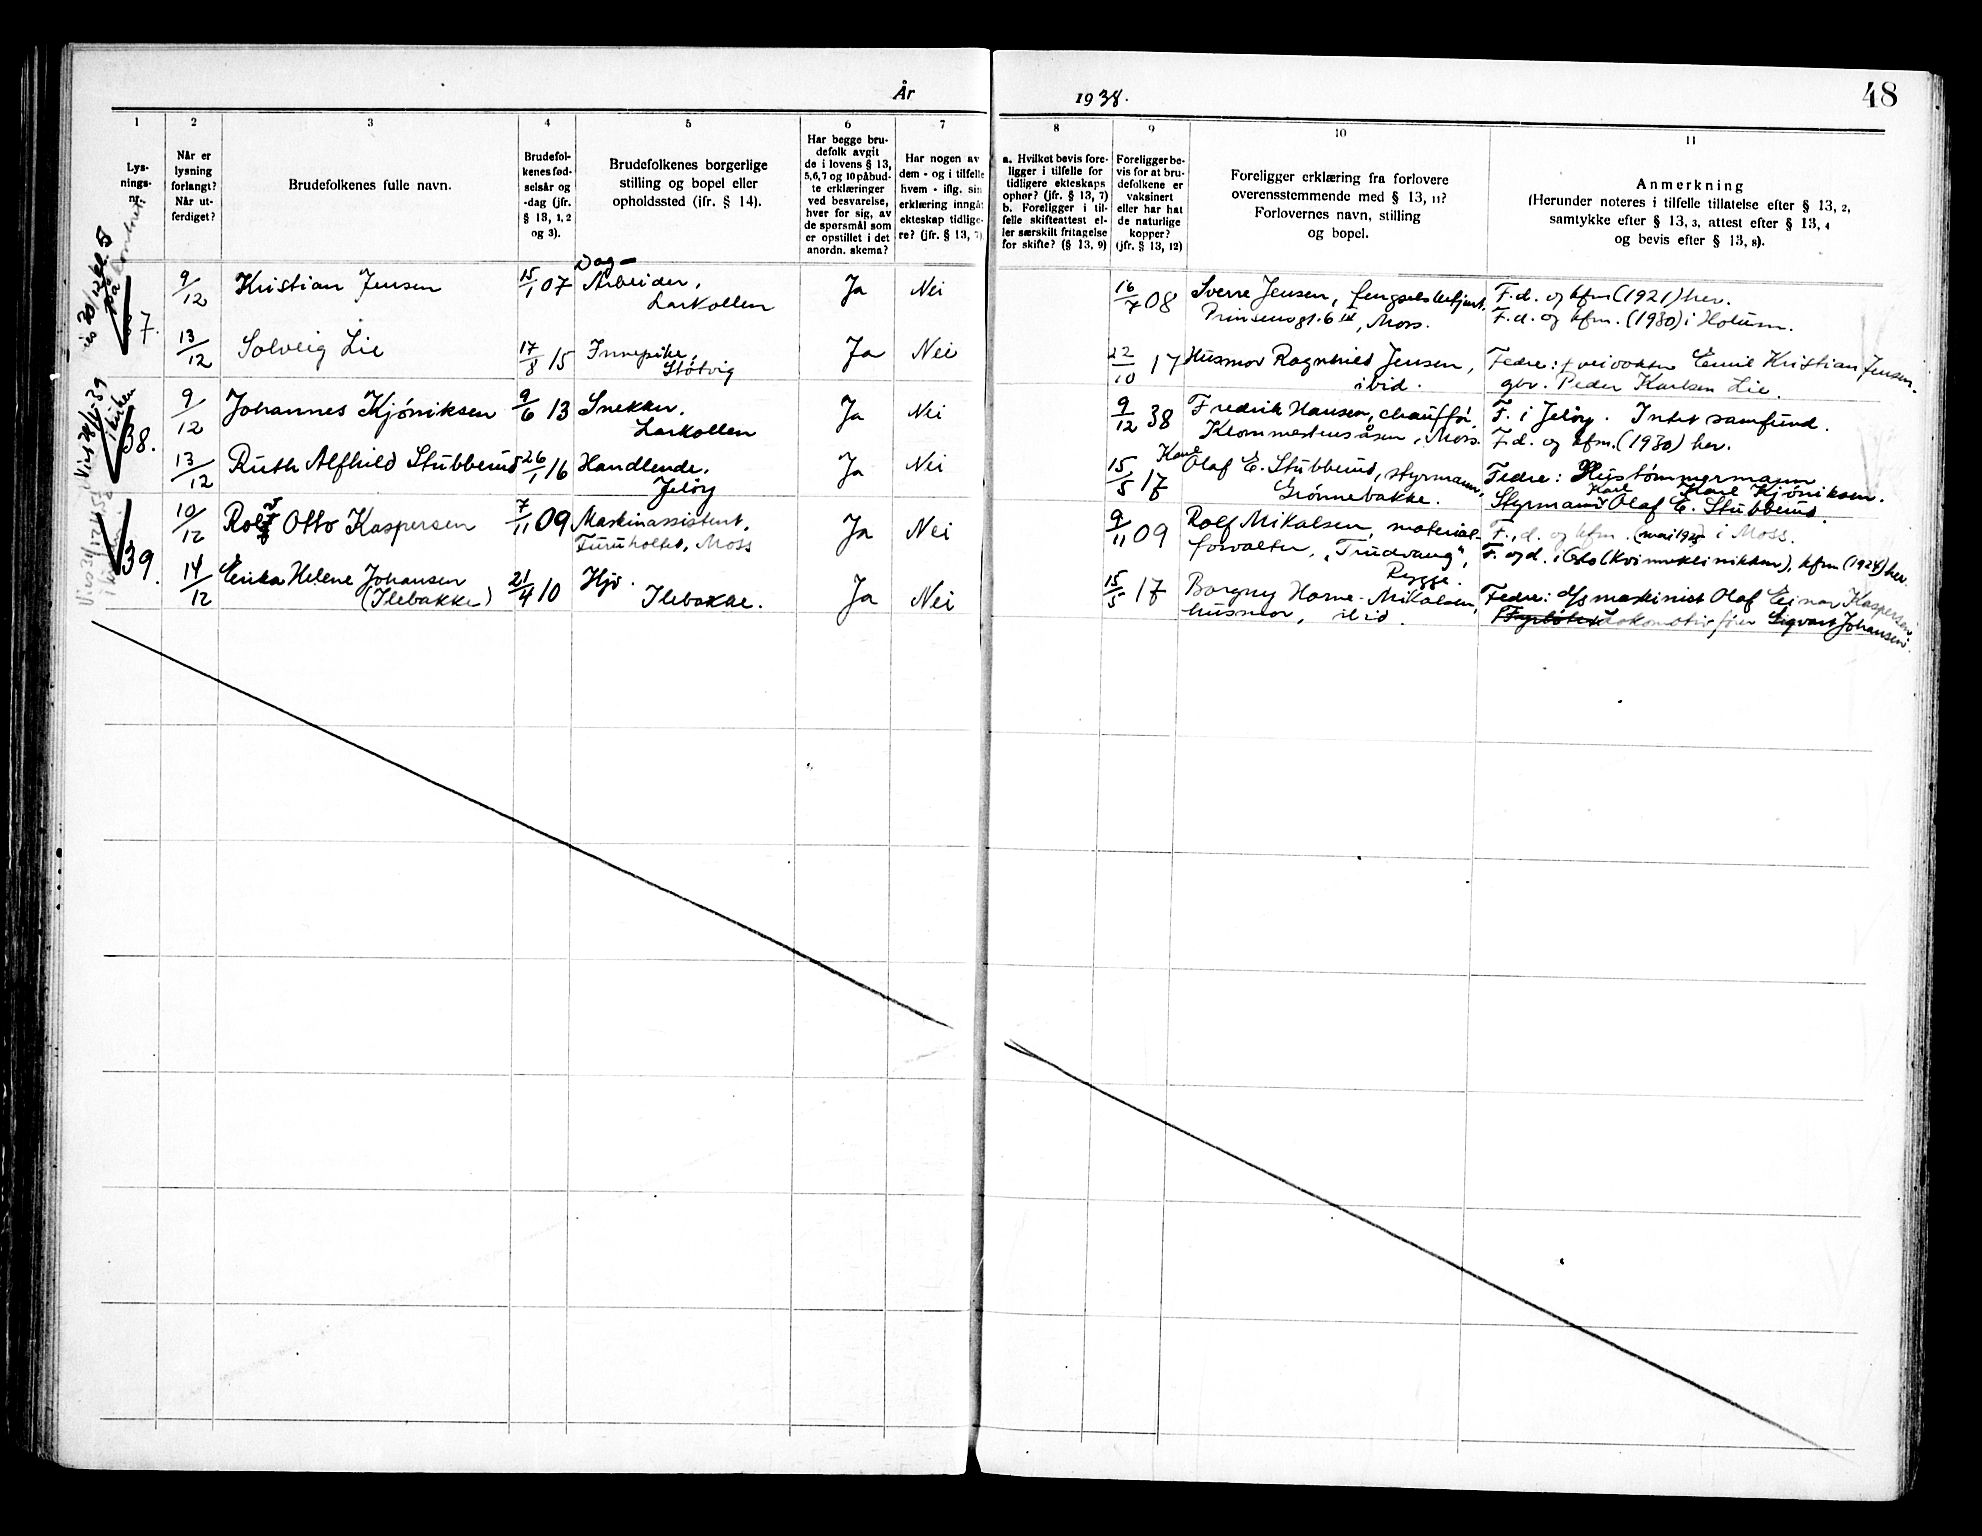 År 1938.
48
1 2 3 4 5 6 7 8 9 10 11
Lys-
nings-
nr.
Når er
lysning
forlangt?
Når ut-
ferdiget?
Brudefolkenes fulle navn.
Brudefol-
kenes fød-
selsår og
-dag (jfr.
§ 13, 1, 2
og 3).
Brudefolkenes borgerlige
stilling og bopel eller
opholdssted (jfr. § 14).
Har begge bru-
defolk avgit
de i lovens § 13,
5,6,7 og 10 påbud-
te erklæringer
ved besvarelse,
hver for sig, av
de spørsmål som
er opstillet i det
anordn. skema?
Har nogen av
dem - og i tilfelle
hvem - iflg. sin
erklæring inngåt
ekteskap tidlige-
re? (jfr. § 13, 7)
a. Hvilket bevis fore-
ligger i tilfelle for
tidligere ekteskaps
ophør? (jfr. § 13, 7)
b. Foreligger i til-
felle skifteattest el-
ler særskilt fritagelse
for skifte? (§ 13, 9)
Foreligger be-
vis for at bru-
defolkene er
vaksinert
eller har hat
de naturlige
kopper?
(jfr. § 13, 12)
Foreligger erklæring fra forlovere
overensstemmende med § 13, 11?
Forlovernes navn, stilling
og bopel.
Anmerkning
(Herunder noteres i tilfelle tillatelse efter § 13, 2,
samtykke efter § 13, 3, attest efter § 13, 4
og bevis efter § 13, 8).
7.
9/12 Kristian Jensen 15/1 07 Dag-
Arbeider,
Larkollen
Ja Nei 16/4 08 Sverre Jensen, fengselsbetjent,
Prinsensgt. 6 III, Moss.
F.d. og kfm (1921) her.
F.d. og kfm. (1930) i Holum.
13/12 Solveig Lie 17/8 15 Innepike,
Støtvig
Ja Nei 22/10 17 Husmor Ragnhild Jensen,
ibid.
Fedre: † veivokter Emil Kristian Jensen.
gbr. Peder Karlsen Lie.
38.
9/12 Johannes Kjöniksen 9/6 13 Snekker.
Larkollen
Ja Nei 9/12 38 Fredrik Hansen, chauffør,
Krommestensåsen, Moss.
F. i Jeløy. Intet samfund.
F.d. og kfm. (1930) her.
13/12 Ruth Alfhild Stubberud 26/1 16 Handlende.
Jeløy
Ja 15/5 17 Karl
Olaf E. Stubberud, styrmann,
Grønnebakke.
Fedre: Hustømmermann
Karl Kjöniksen.
Styrmann Karl Olaf E. Stubberud.
39.
10/12 Rolf Otto Kaspersen 7/11 09 Maskinassistent,
Furuholtet, Moss
Ja Nei 9/11 09 Rolf Mikalsen, material-
forvalter, "Trudvang",
Rygge.
F., d. og kfm. i Moss.
F. og d. i Oslo (Kvinneklinikken), kfm (1924) her.
14/12 Erika Helene Johansen
(Ilebakke)
21/4 10 Hjv.
Ilebakke.
Ja Nei 15/5 17 Borgny Horne-Mikalsen,
husmor, ibid.
Fedre: d/s maskinist Olaf Einar Kaspersen.
Lokomotivfører Sigvart Johansen.